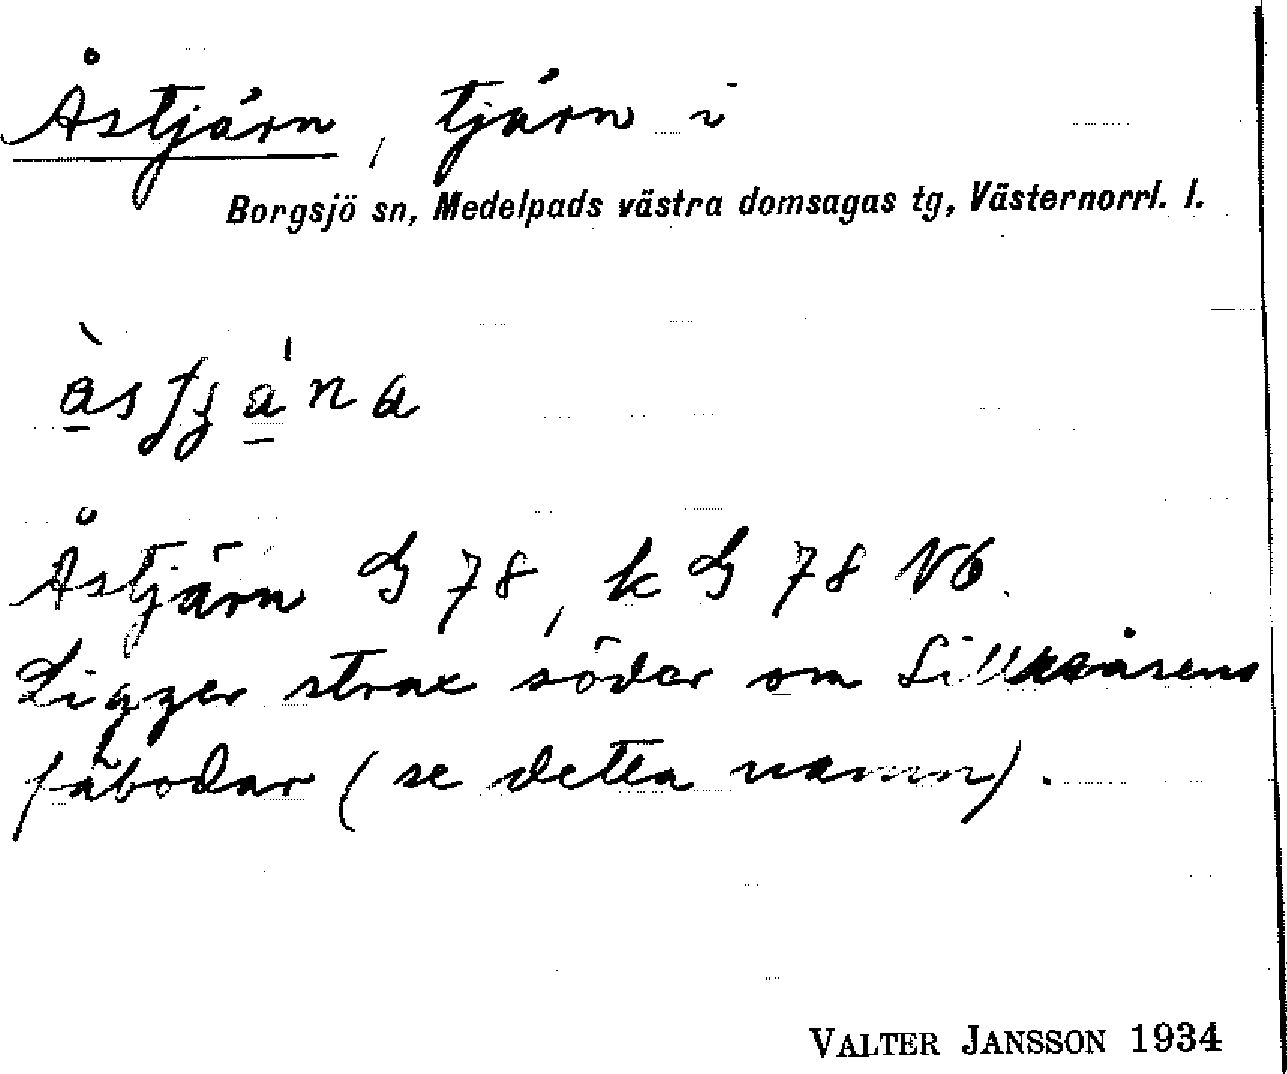 Åstjärn, tjärn i
Borgsjö sn, Medelpads västra domsagas tg, Västernorrl. l.
Åstjärn G 78, k G 78 NÖ.
Ligger strax söder om
fäbodar (se detta namn).
VALTER JANSSON 1934